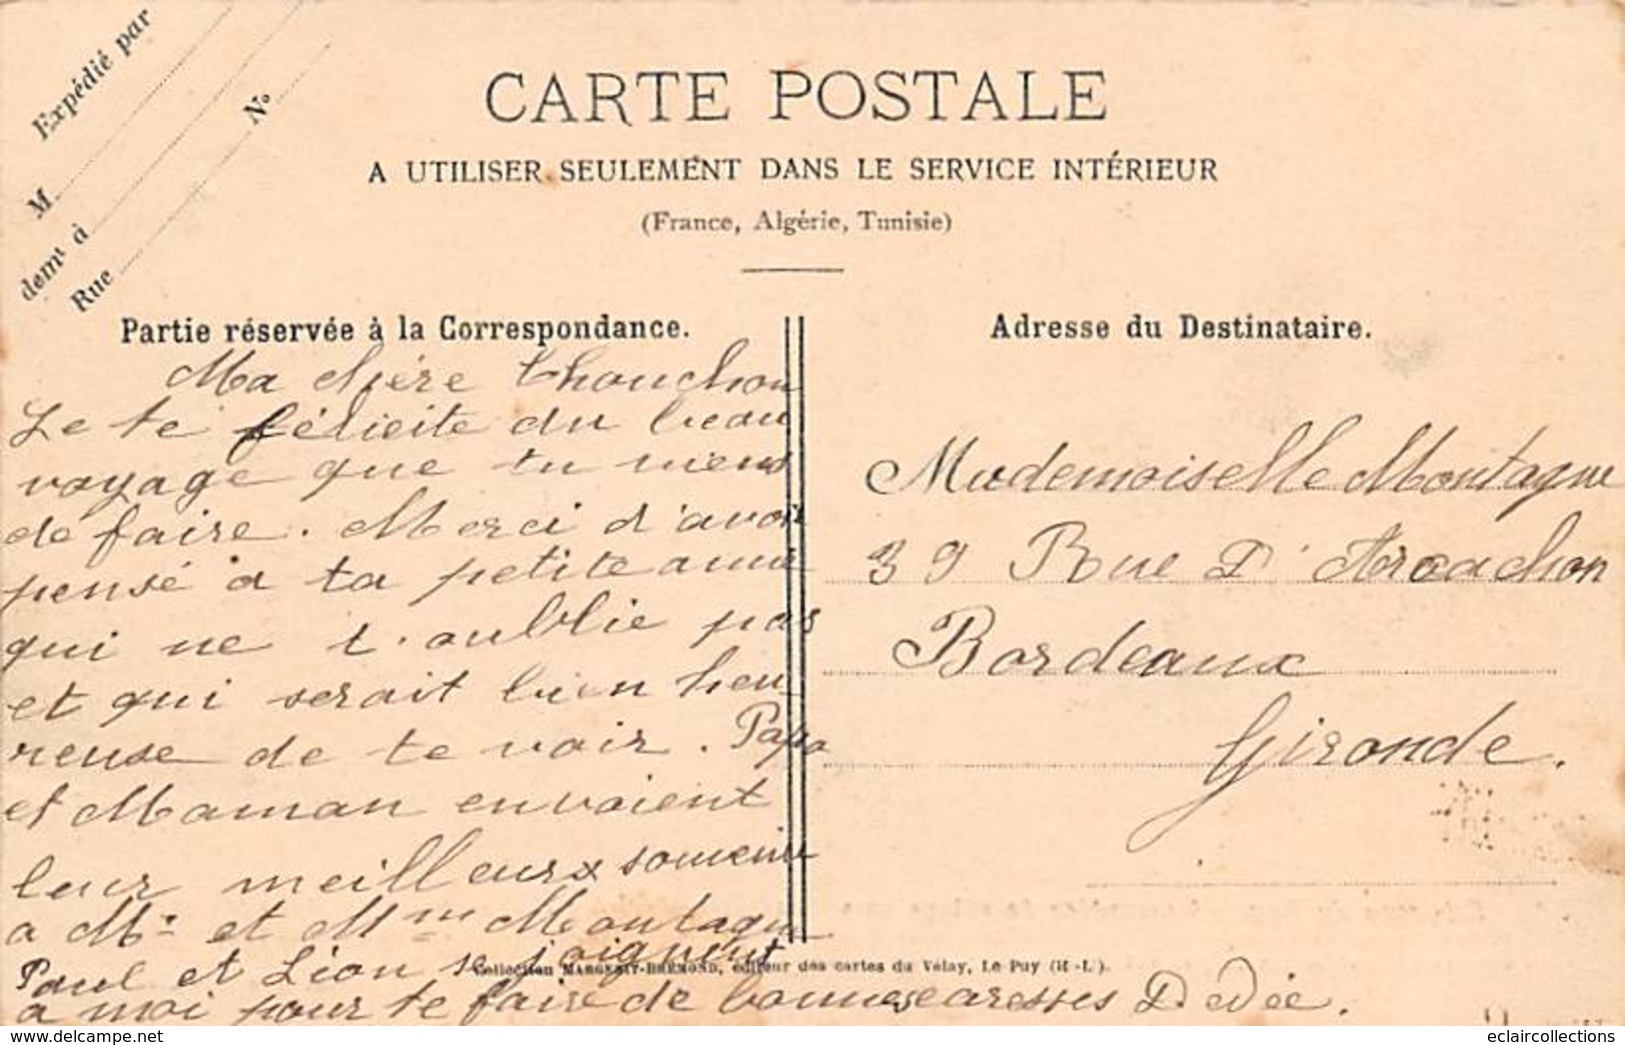 Expédié par
M
demt à
Rue
No
CARTE POSTALE
A UTILISER SEULEMENT DANS LE SERVICE INTÉRIEUR
(France, Algérie, Tunisie)
Partie réservée à la Correspondance.
Ma chère Chouchon
Je te félicite du beau
voyage que tu viens
de faire. Merci d'avoir
pensé a ta petite amie
qui ne t'oublie pas
et qui serait bien heu
reuse de te voir. Papa
et Maman envoient
leur meilleurx souvenir
a Mr et Mme Montagne
Paul et Léon se joignent
a moi pour te faire de bonnes caresses Dédée.
Adresse du Destinataire.
Mademoiselle Montagne
39 Rue D'Arcachon
Bordeaux
Gironde.
Collection MARGERIT-BRÉMOND, éditeur des cartes du Velay, Le Puy (H.-L.).
www.delcampe.net
eclaircollections